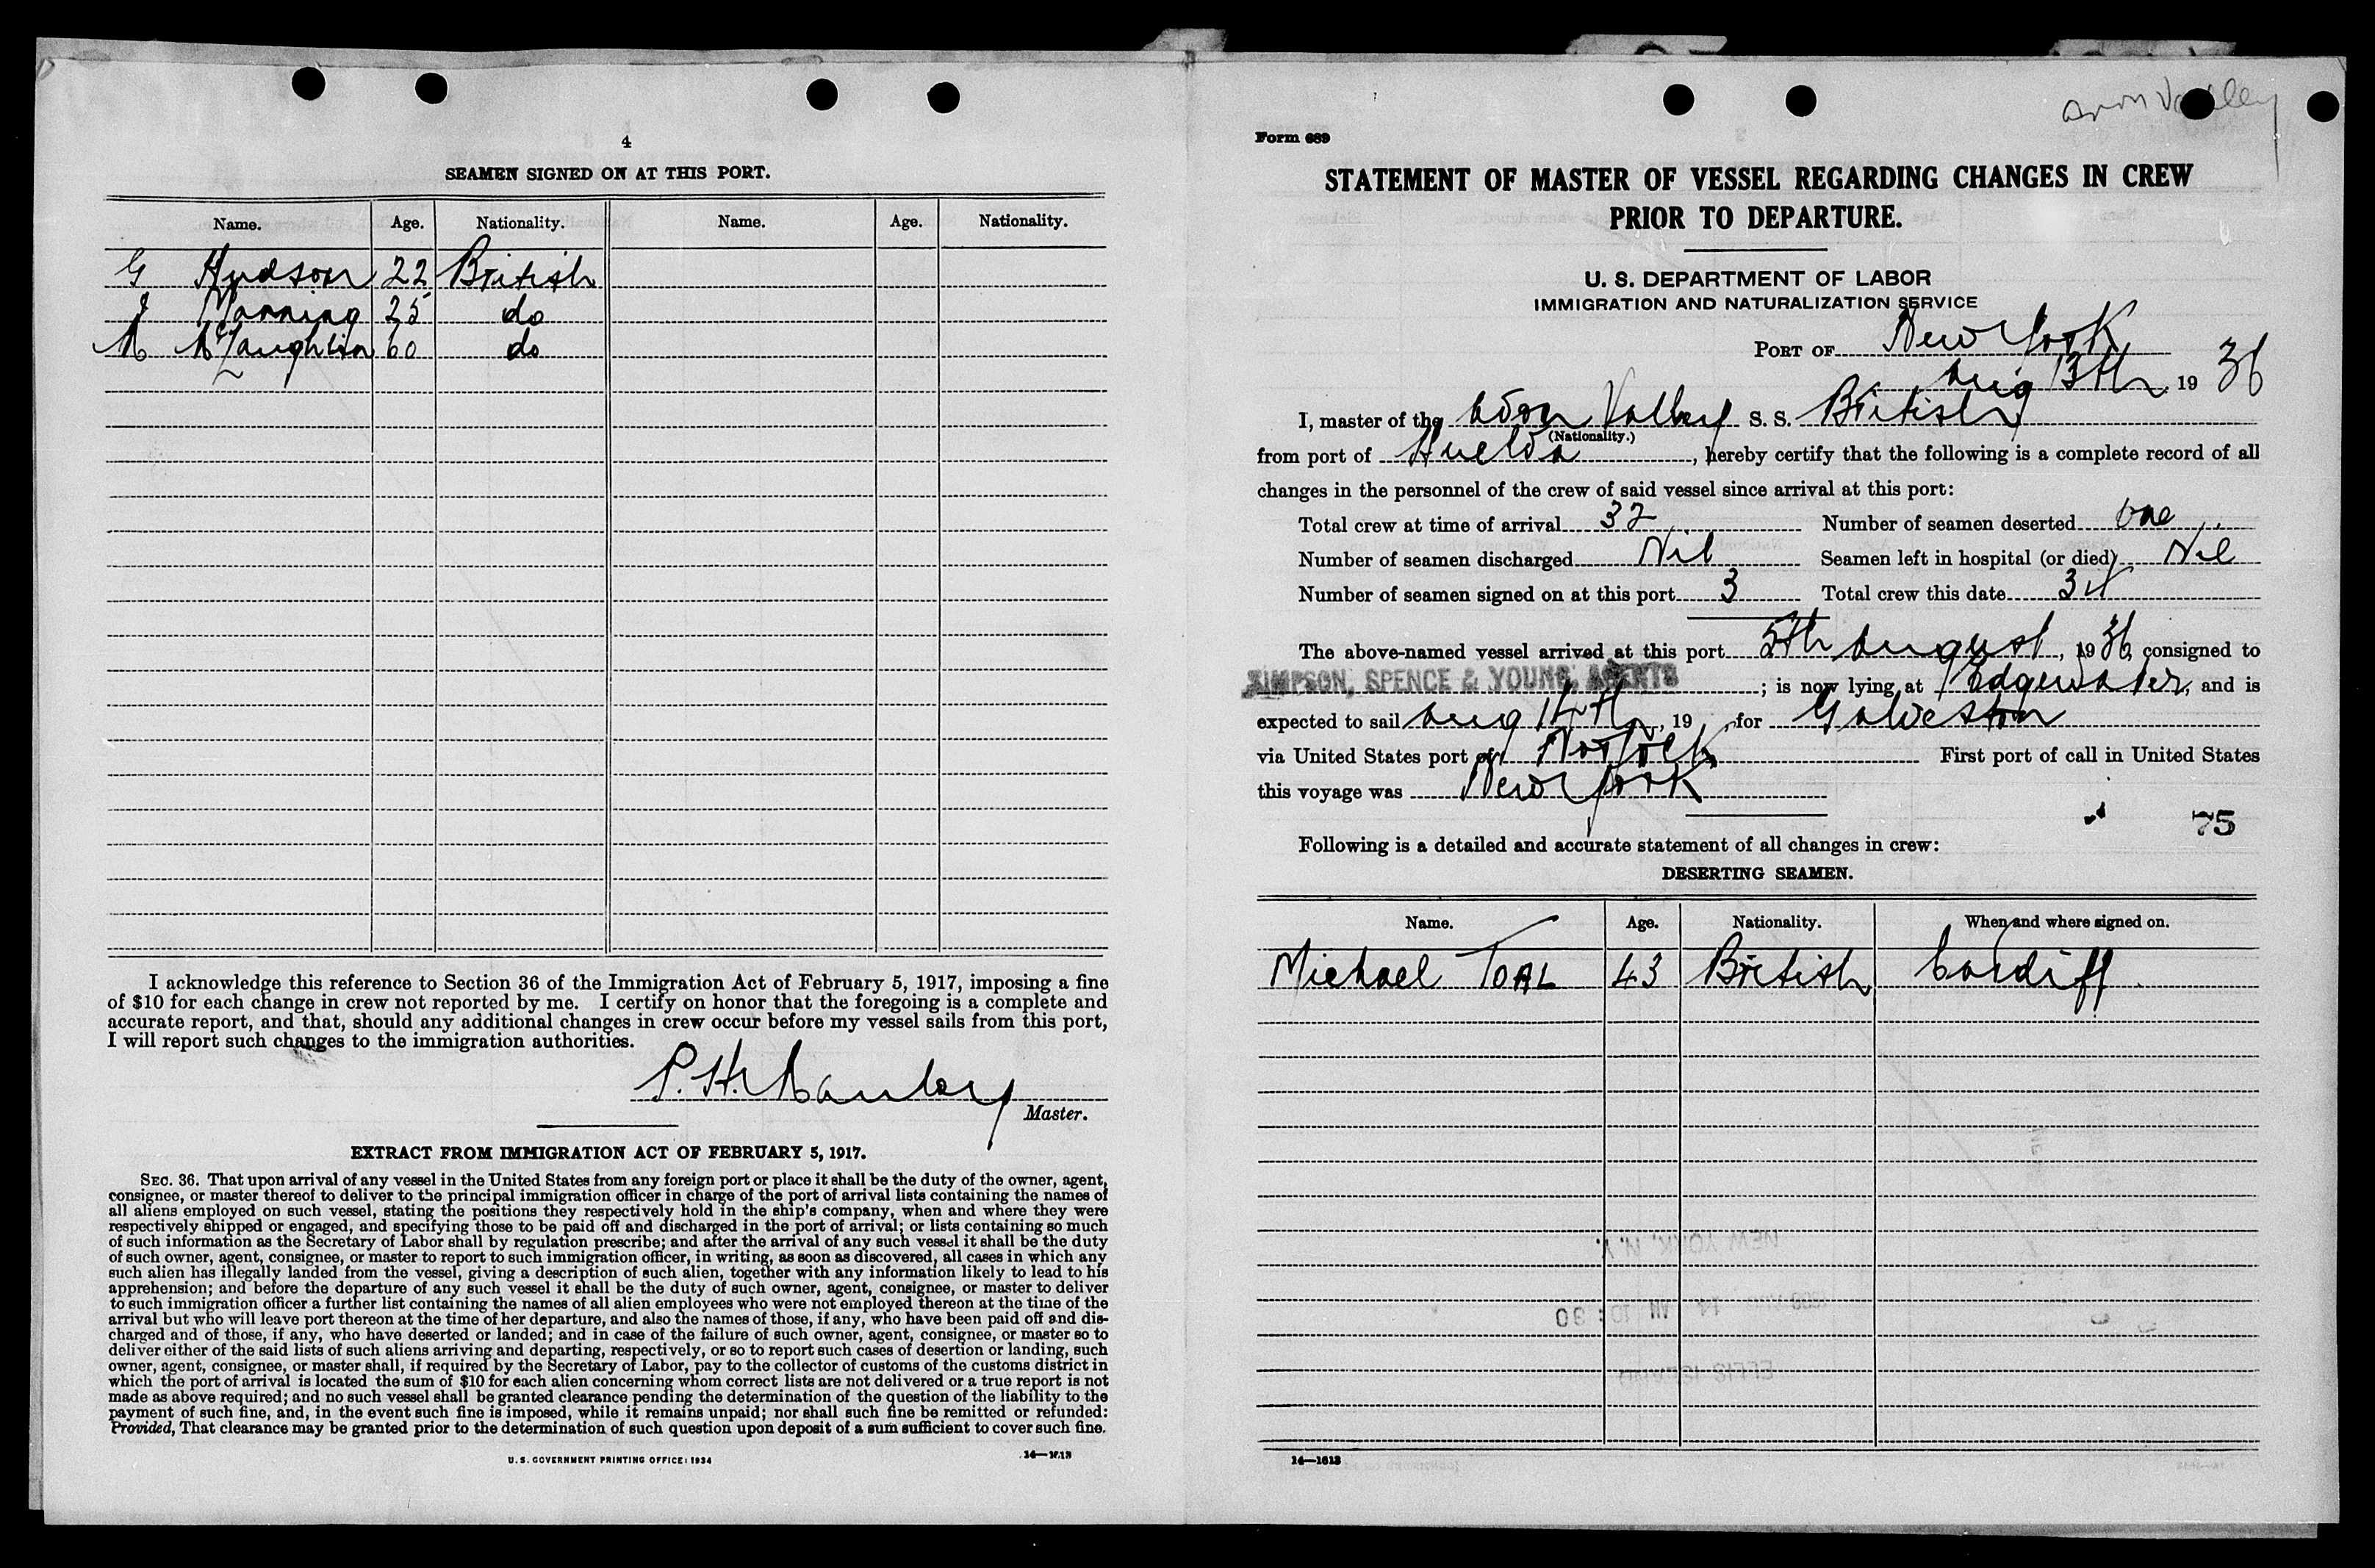 4
SEAMEN SIGNED ON AT THIS PORT.
Name. Age. Nationality. Name. Age. Nationality.
G Hudson 22 British
J Manning 25 do
M McLaughlin 60 do
I acknowledge this reference to Section 36 of the Immigration Act of February 5, 1917, imposing a fine
of $10 for each change in crew not reported by me. I certify on honor that the foregoing is a complete and
accurate report, and that, should any additional changes in crew occur before my vessel sails from this port,
I will report such changes to the immigration authorities.
P. H.
Master.
EXTRACT FROM IMMIGRATION ACT OF FEBRUARY 5, 1917.
SEC. 36. That upon arrival of any vessel in the United States from any foreign port or place it shall be the duty of the owner, agent,
consignee, or master thereof to deliver to the principal immigration officer in charge of the port of arrival lists containing the names of
all aliens employed on such vessel, stating the positions they respectively hold in the ship's company, when and where they were
respectively shipped or engaged, and specifying those to be paid off and discharged in the port of arrival; or lists containing so much
of such information as the Secretary of Labor shall by regulation prescribe; and after the arrival of any such vessel it shall be the duty
of such owner, agent, consignee, or master to report to such immigration officer, in writing, as soon as discovered, all cases in which any
such alien has illegally landed from the vessel, giving a description of such alien, together with any information likely to lead to his
apprehension; and before the departure of any such vessel it shall be the duty of such owner, agent, consignee, or master to deliver
to such immigration officer a further list containing the names of all alien employees who were not employed thereon at the time of the
arrival but who will leave port thereon at the time of her departure, and also the names of those, if any, who have been paid off and dis-
charged and of those, if any, who have deserted or landed; and in case of the failure of such owner, agent, consignee, or master so to
deliver either of the said lists of such aliens arriving and departing, respectively, or so to report such cases of desertion or landing, such
owner, agent, consignee, or master shall, if required by the Secretary of Labor, pay to the collector of customs of the customs district in
which the port of arrival is located the sum of $10 for each alien concerning whom correct lists are not delivered or a true report is not
made as above required; and no such vessel shall be granted clearance pending the determination of the question of the liability to the
payment of such fine, and, in the event such fine is imposed, while it remains unpaid; nor shall such fine be remitted or refunded:
Provided, That clearance may be granted prior to the determination of such question upon deposit of a sum sufficient to cover such fine.
U.S. GOVERNMENT PRINTING OFFICE: 1934 14—1613
Avon Valley
Form 689
STATEMENT OF MASTER OF VESSEL REGARDING CHANGES IN CREW
PRIOR TO DEPARTURE.
U. S. DEPARTMENT OF LABOR
IMMIGRATION AND NATURALIZATION SERVICE
PORT OF New York
Aug 13th, 1936
I, master of the Avon Valley S. S. British
(Nationality.)
from port of Huelva, hereby certify that the following is a complete record of all
changes in the personnel of the crew of said vessel since arrival at this port:
Total crew at time of arrival 32 Number of seamen deserted one
Number of seamen discharged Nil Seamen left in hospital (or died) Nil
Number of seamen signed on at this port 3 Total crew this date 34
The above-named vessel arrived at this port 5th August, 1936, consigned to
SIMPSON, SPENCE & YOUNG, AGENTS; is now lying at Edgewater, and is
expected to sail Aug 14th, 19 , for Galveston
via United States port of Norfolk First port of call in United States
this voyage was New York
75
Following is a detailed and accurate statement of all changes in crew:
DESERTING SEAMEN.
Name. Age. Nationality. When and where signed on.
Michael TOAL 43 British Cardiff
14—1613